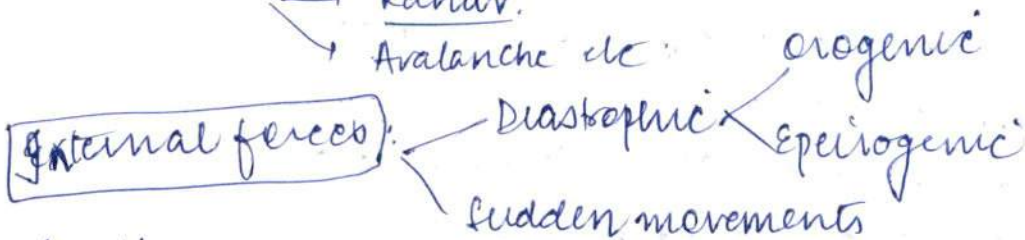 Avalanche etc.
orogenic
Internal forces: Diastrophic
Epeirogenic
Sudden movements